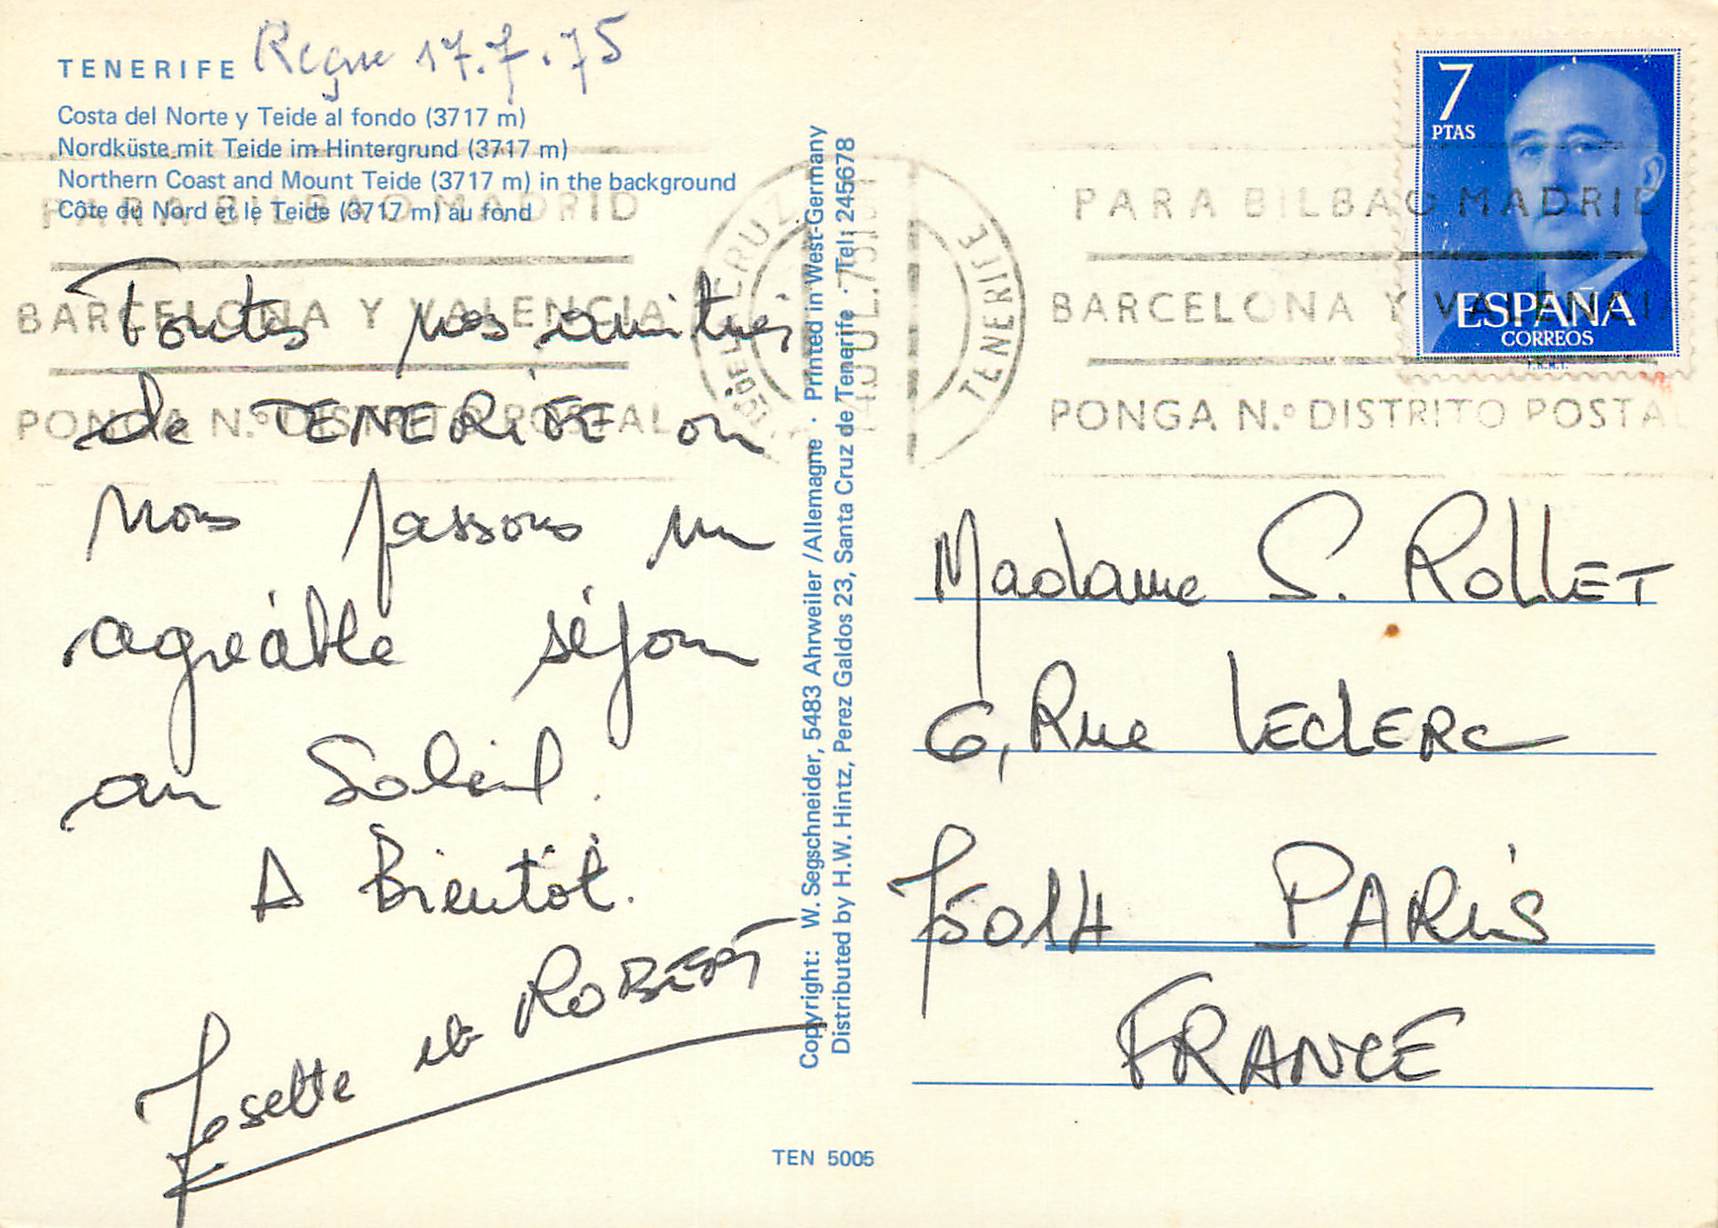 TENERIFE
17.7.75
Costa del Norte y Teide al fondo (3717 m)
Nordküste mit Teide im Hintergrund (3717 m)
Northern Coast and Mount Teide (3717 m) in the background
Côte du Nord et le Teide (3717 m) au fond
PARA BILBAO MADRID
BARCELONA Y VALENCIA
PONGA N.º DISTRITO POSTAL
Toutes nos amitiés
de TENERIFE où
nous passons un
agréable séjour
au Soleil.
A Bientôt.
Josette et ROBERT
Copyright: W. Segschneider, 5483 Ahrweiler /Allemagne · Printed in West-Germany
Distributed by H.W. Hintz, Perez Galdos 23, Santa Cruz de Tenerife · Tel: 245678
TEN 5005
CRUZ DE TENERIFE
JUL. 75
7
PTAS
ESPAÑA
CORREOS
PARA BILBAO MADRID
BARCELONA Y VALENCIA
PONGA N.º DISTRITO POSTAL
Madame S. ROLLET
6, Rue LECLERC
75014 PARIS
FRANCE